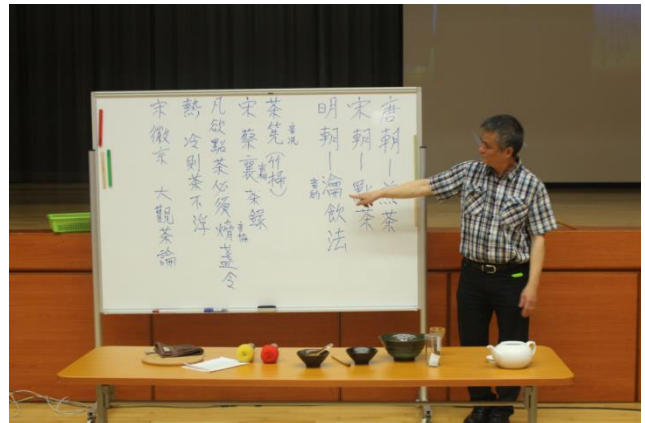 唐朝－煎茶
宋朝－點茶
明朝－瀹飲法
音約
茶筅(竹掃)
音洗
宋 蔡襄 茶錄
凡欲點茶必須熁盞令
熱 冷則茶不浮
宋徽宗 大觀茶論